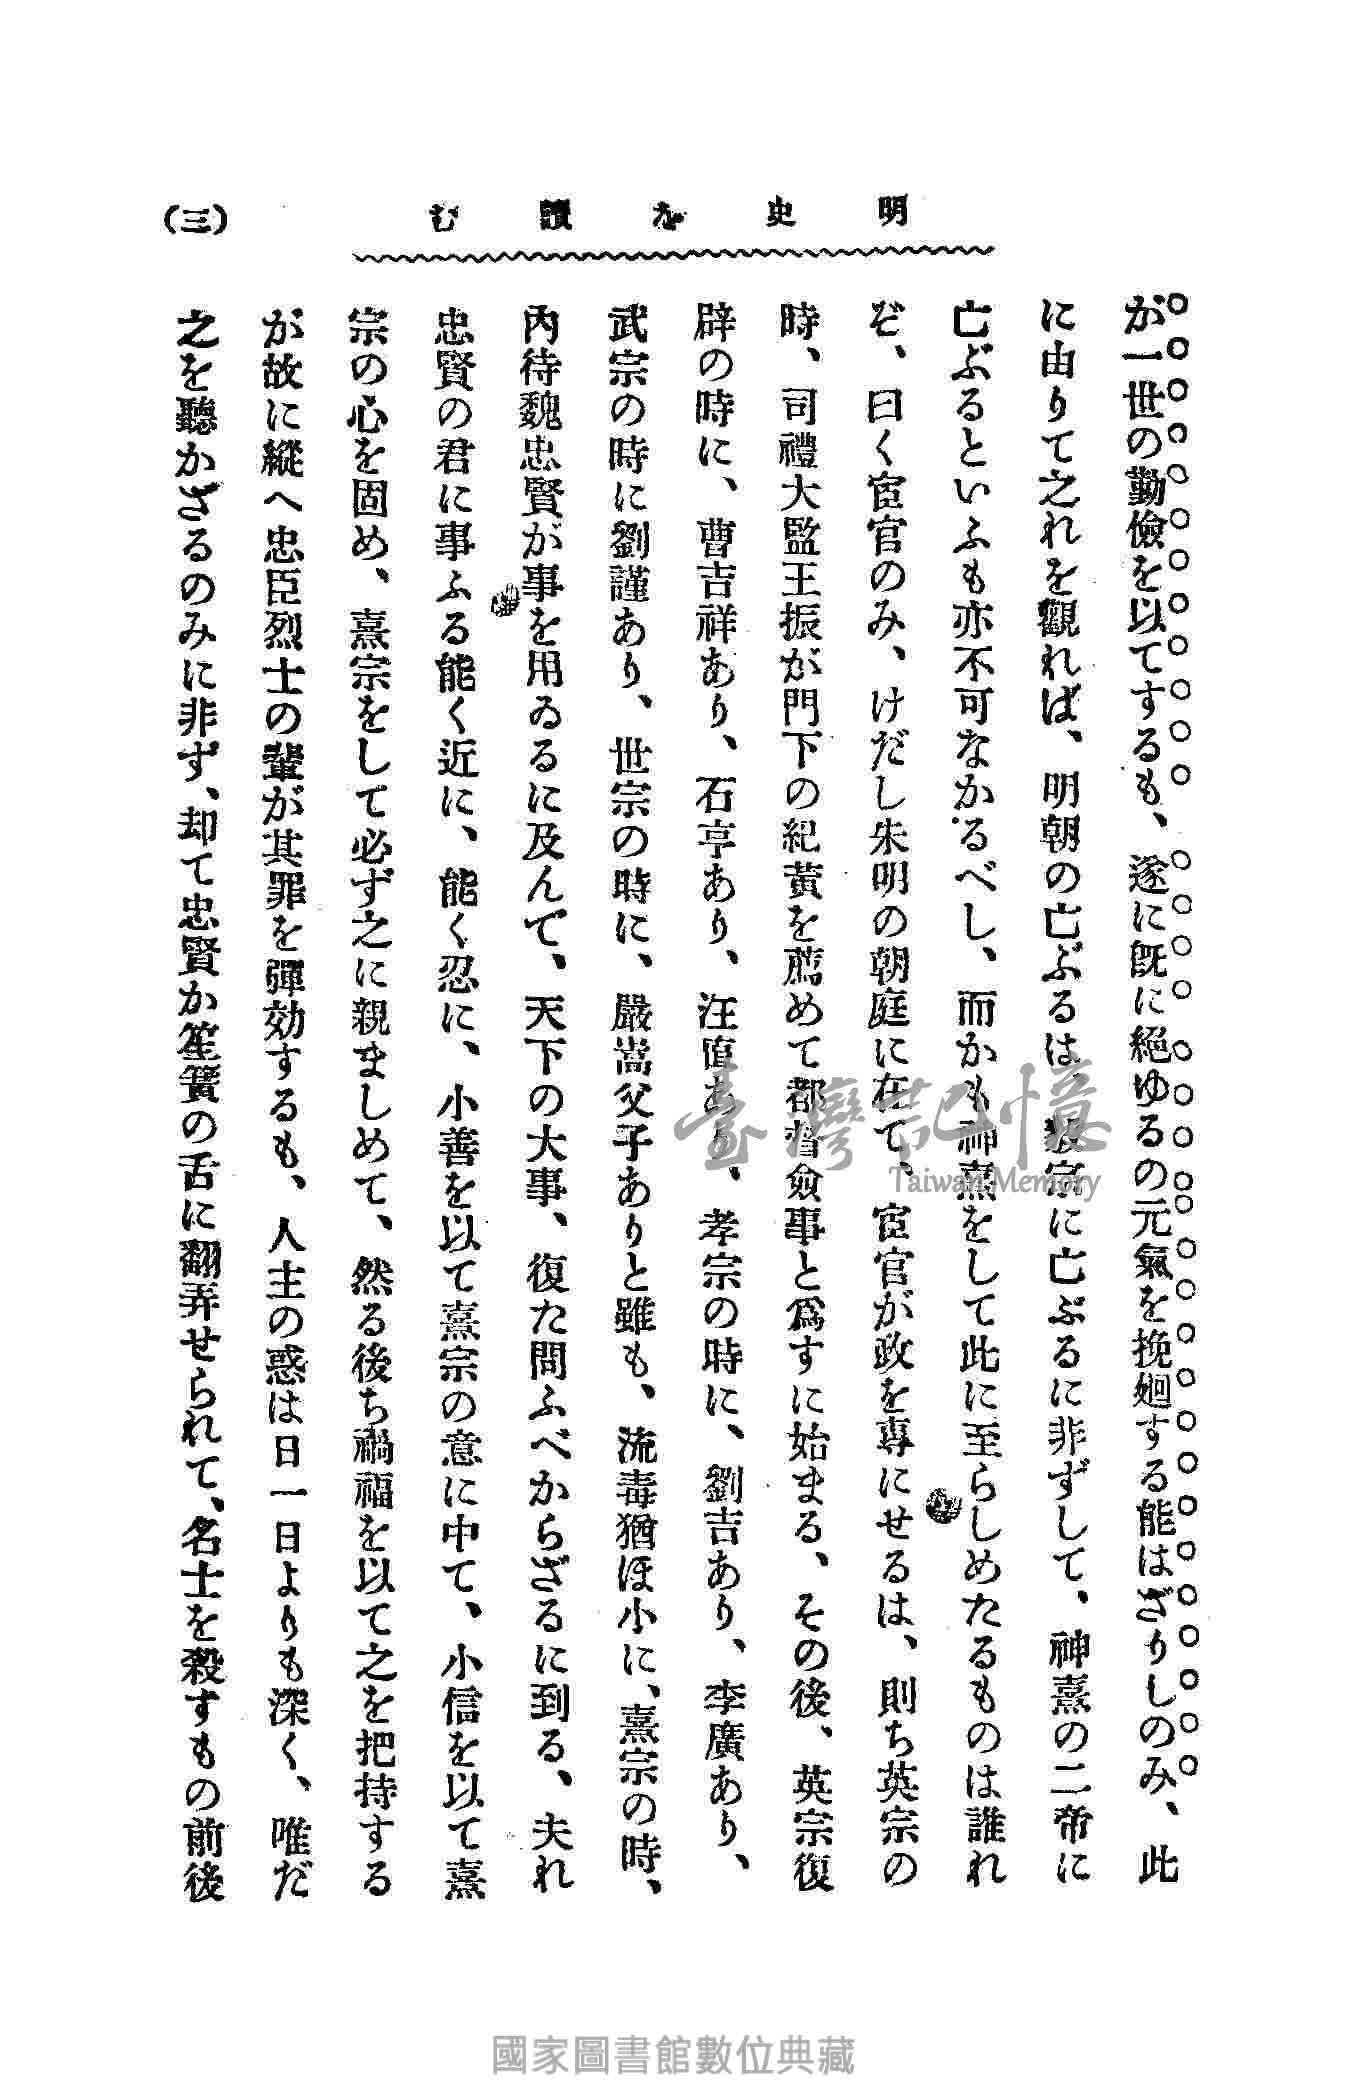 明史を讀む
(三)
が一世の勤儉を以てするも、遂に既に絕ゆるの元氣を挽廻する能はざりしのみ、此
に由りて之れを觀れば、明朝の亡ぶるは毅宗に亡ぶるに非ずして、神熹の二帝に
亡ぶるといふも亦不可なかるべし、而かも神熹をして此に至らしめたるものは誰れ
ぞ、曰く宦官のみ、けだし朱明の朝庭に在て、宦官が政を專にせるは、則ち英宗の
時、司禮大監王振が門下の紀黃を薦めて都督僉事と爲すに始まる、その後、英宗復
辟の時に、曹吉祥あり、石亨あり、汪直あり、孝宗の時に、劉吉あり、李廣あり、
武宗の時に劉謹あり、世宗の時に、嚴嵩父子ありと雖も、流毒猶ほ小に、熹宗の時、
內待魏忠賢が事を用ゐるに及んで、天下の大事、復た問ふべからざるに到る、夫れ
忠賢の君に事ふる能く近に、能く忍に、小善を以て熹宗の意に中て、小信を以て熹
宗の心を固め、熹宗をして必ず之に親ましめて、然る後ち禍福を以て之を把持する
が故に縱へ忠臣烈士の輩が其罪を彈効するも、人主の惑は日一日よりも深く、唯だ
之を聽かざるのみに非ず、却て忠賢か笙簧の舌に翻弄せられて、名士を殺すもの前後
臺灣記憶
Taiwan Memory
國家圖書館數位典藏